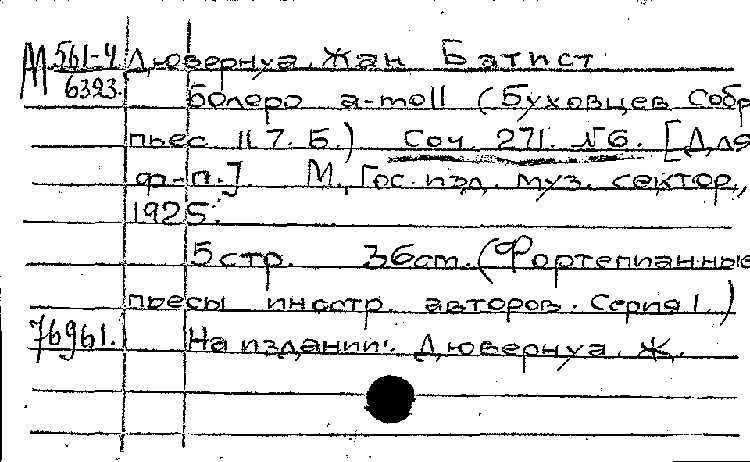 М 561-4 Дювернуа, Жан Батист
6393.
Болеро a-moll (Буховцев Собр
пьес II 7. Б.) Соч. 271. №6. [Для
ф-п.] М., Гос. изд. муз. сектор,
1925.
5 стр. 36 ст. (Фортепианные
пьесы иностр. авторов. Серия I.)
76961. На издании: Дювернуа, Ж.